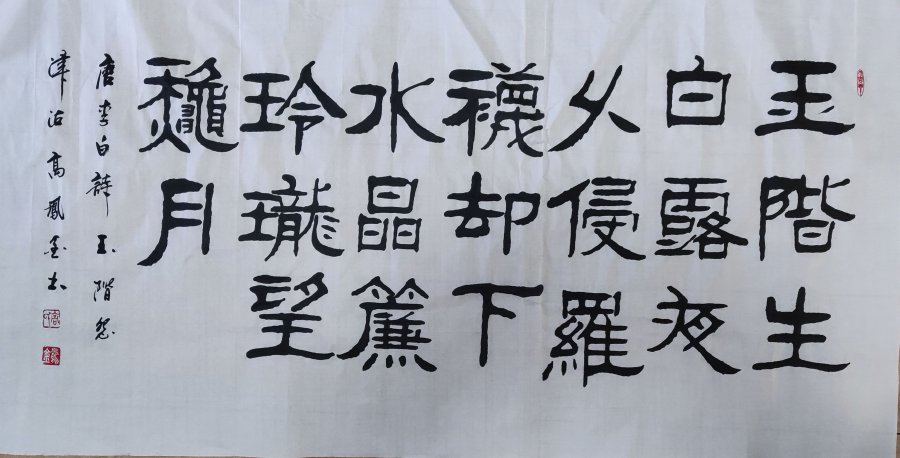 玉階生
白露夜
久侵羅
襪却下
水晶簾
玲瓏望
龝月
唐李白詩玉階怨
津沽高鳳